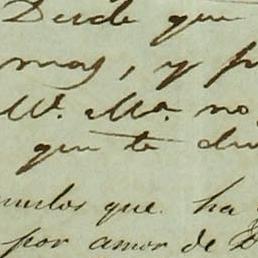 Desde que
mas, y p
W. Ma. no
que te du
mulos que ha
por amor de D